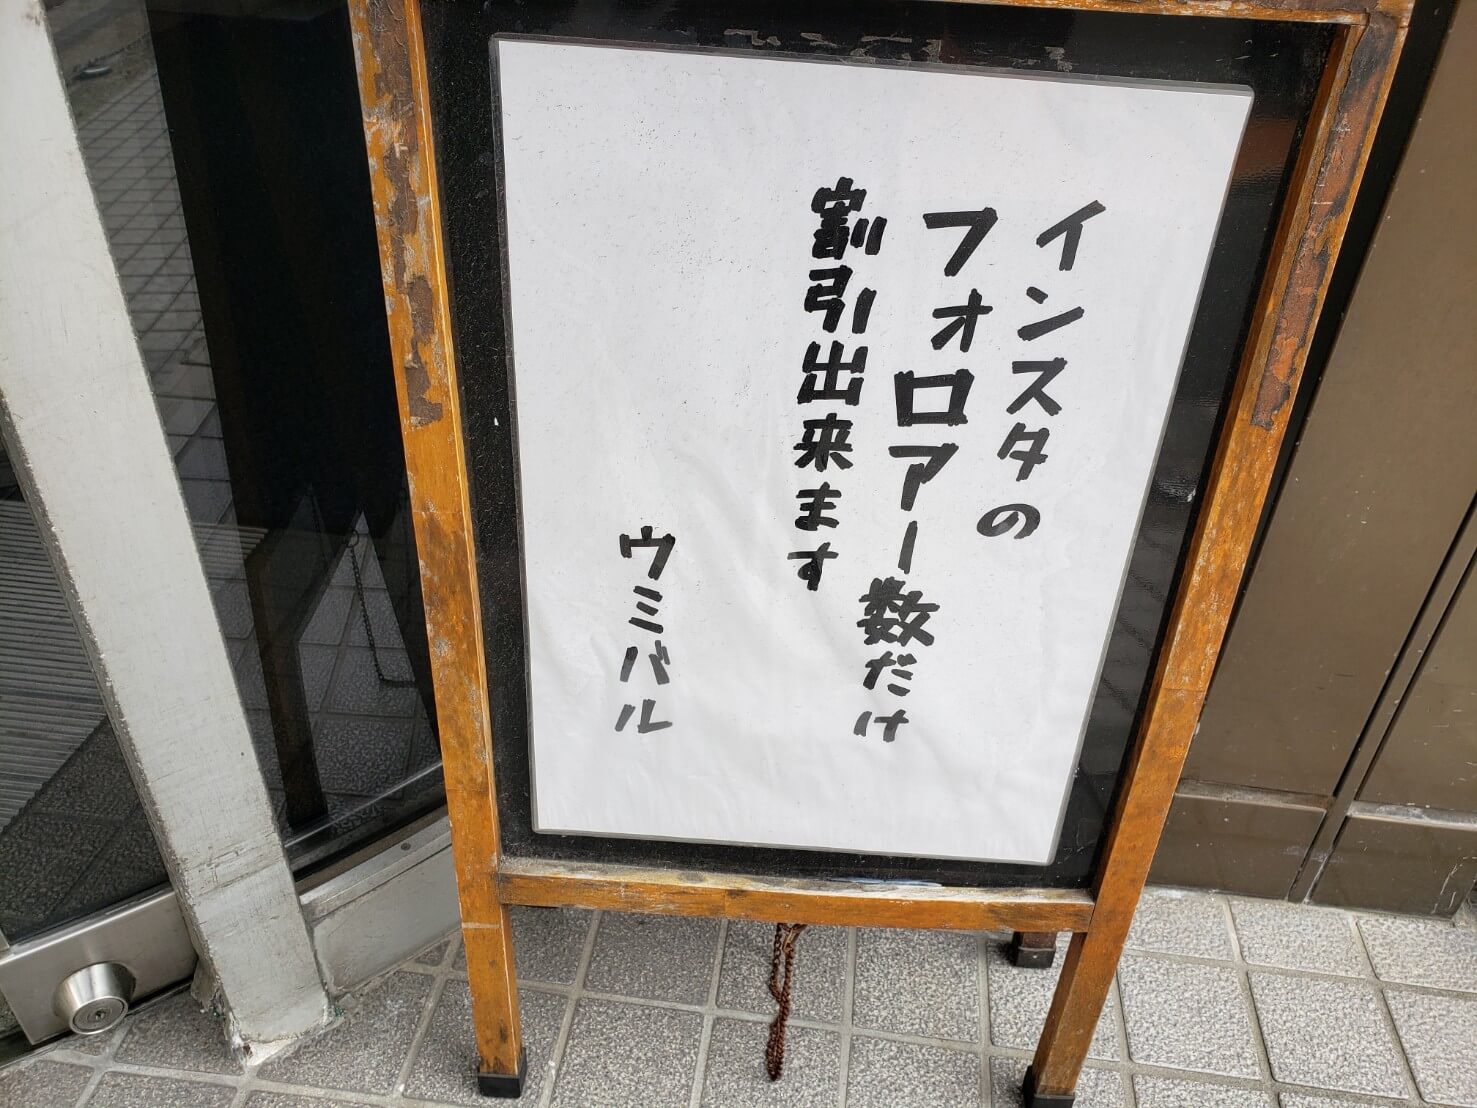 インスタの
フォロアー数だけ
割引出来ます
ウミバル